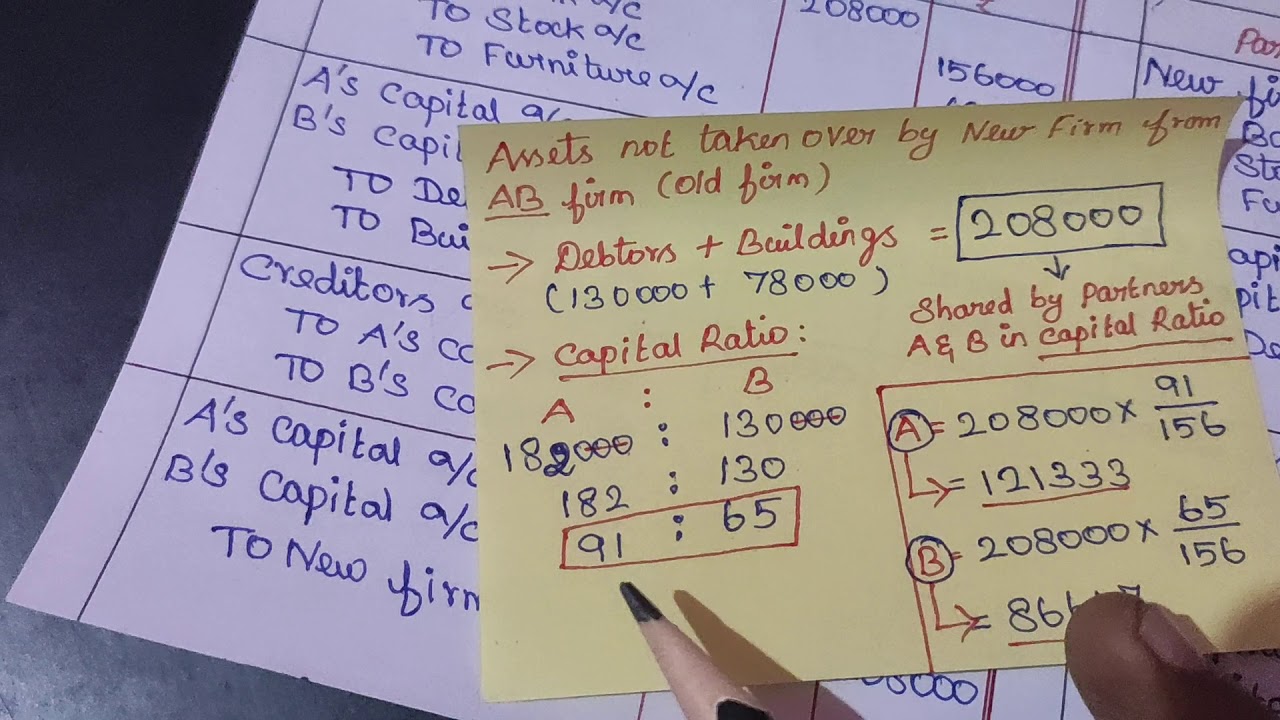 208000
TO Stock a/c
TO Furniture a/c
156000
A's Capital a/c
B's Capi
TO De
TO Bui
Creditors
TO A's Co
TO B's Co
A's Capital a/c
B's Capital a/c
TO New firm
New fi
Assets not taken over by New Firm from
AB firm (old firm)
→ Debtors + Buildings = 208000
(130000 + 78000)
Shared by Partners
A & B in Capital Ratio
→ Capital Ratio:
A : B
182000 : 130000
182 : 130
91 : 65
A = 208000 × 91/156
= 121333
B = 208000 × 65/156
= 866